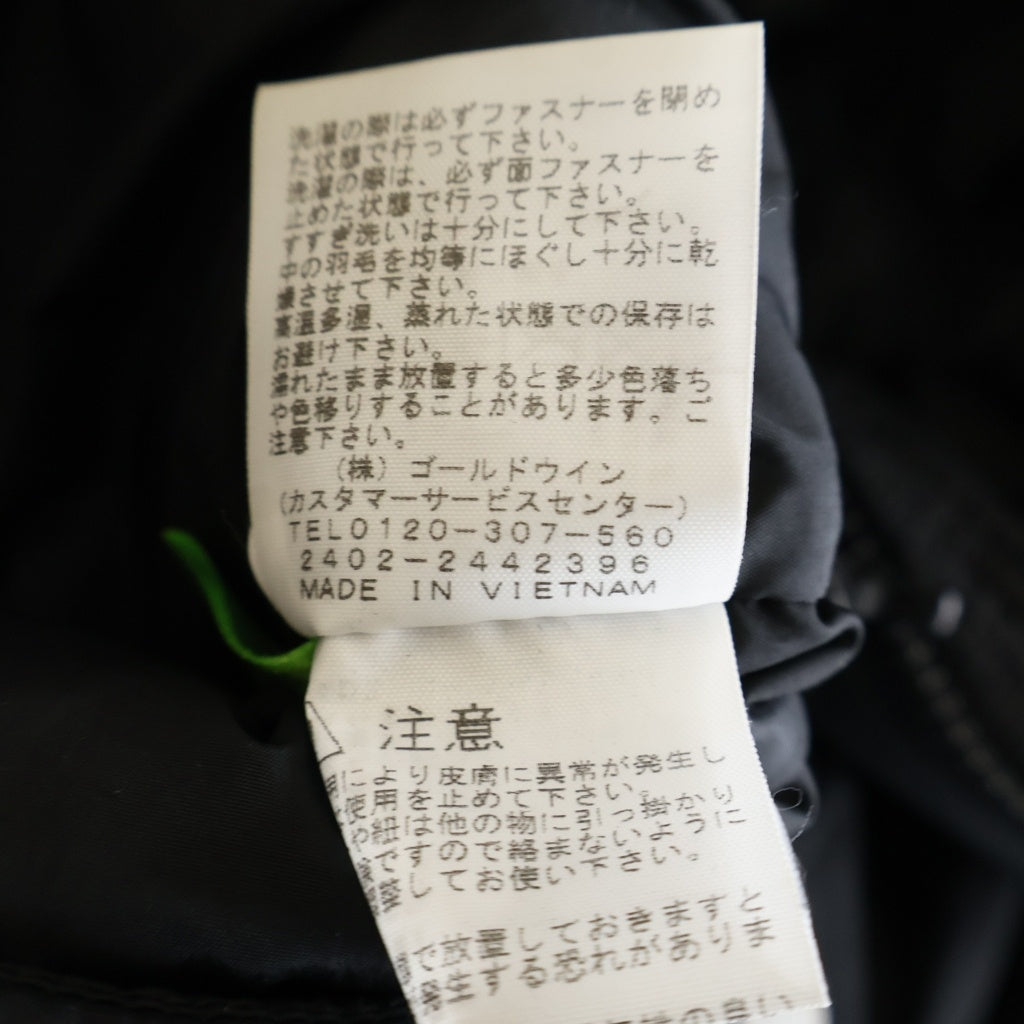 洗濯の際は必ずファスナーを閉め
た状態で行って下さい。
洗濯の際は、必ず面ファスナーを
止めた状態で行って下さい。
すすぎ洗いは十分にして下さい。
中の羽毛を均等にほぐし十分に乾
燥させて下さい。
高温多湿、蒸れた状態での保存は
お避け下さい。
濡れたまま放置すると多少色落ち
や色移りすることがあります。ご
注意下さい。
(株)ゴールドウイン
(カスタマーサービスセンター)
TEL0120-307-560
2402-2442396
MADE IN VIETNAM
注意
により皮膚に異常が発生し
使用を止めて下さい。
や紐は他の物に引っ掛かり
ですので絡まないように
してお使い下さい。
で放置しておきますと
生する恐れがありま
の良い